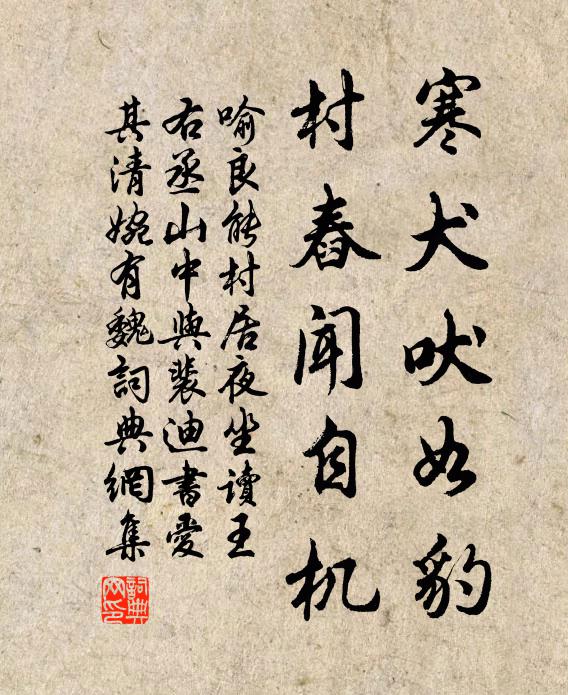 寒犬吠如豹
村舂聞自机
喻良能村居夜坐讀王
右丞山中與裴迪書愛
其清婉有魏詞典網集
詞典
网印